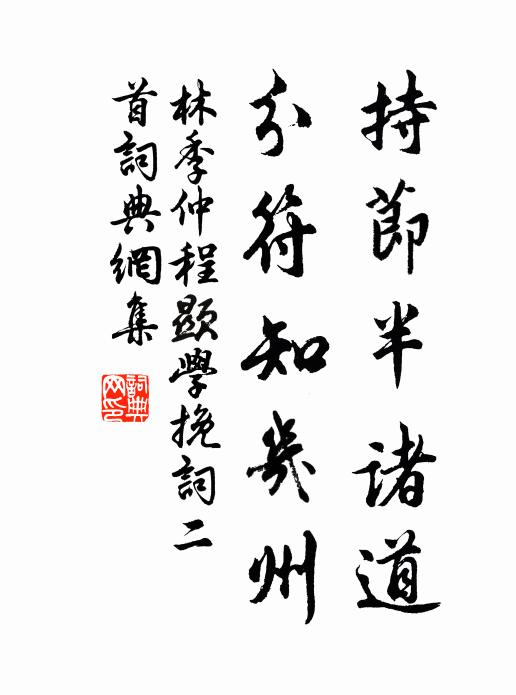 持節半諸道
分符知幾州
林季仲程顯學挽詞二
首詞典網集
詞典網印